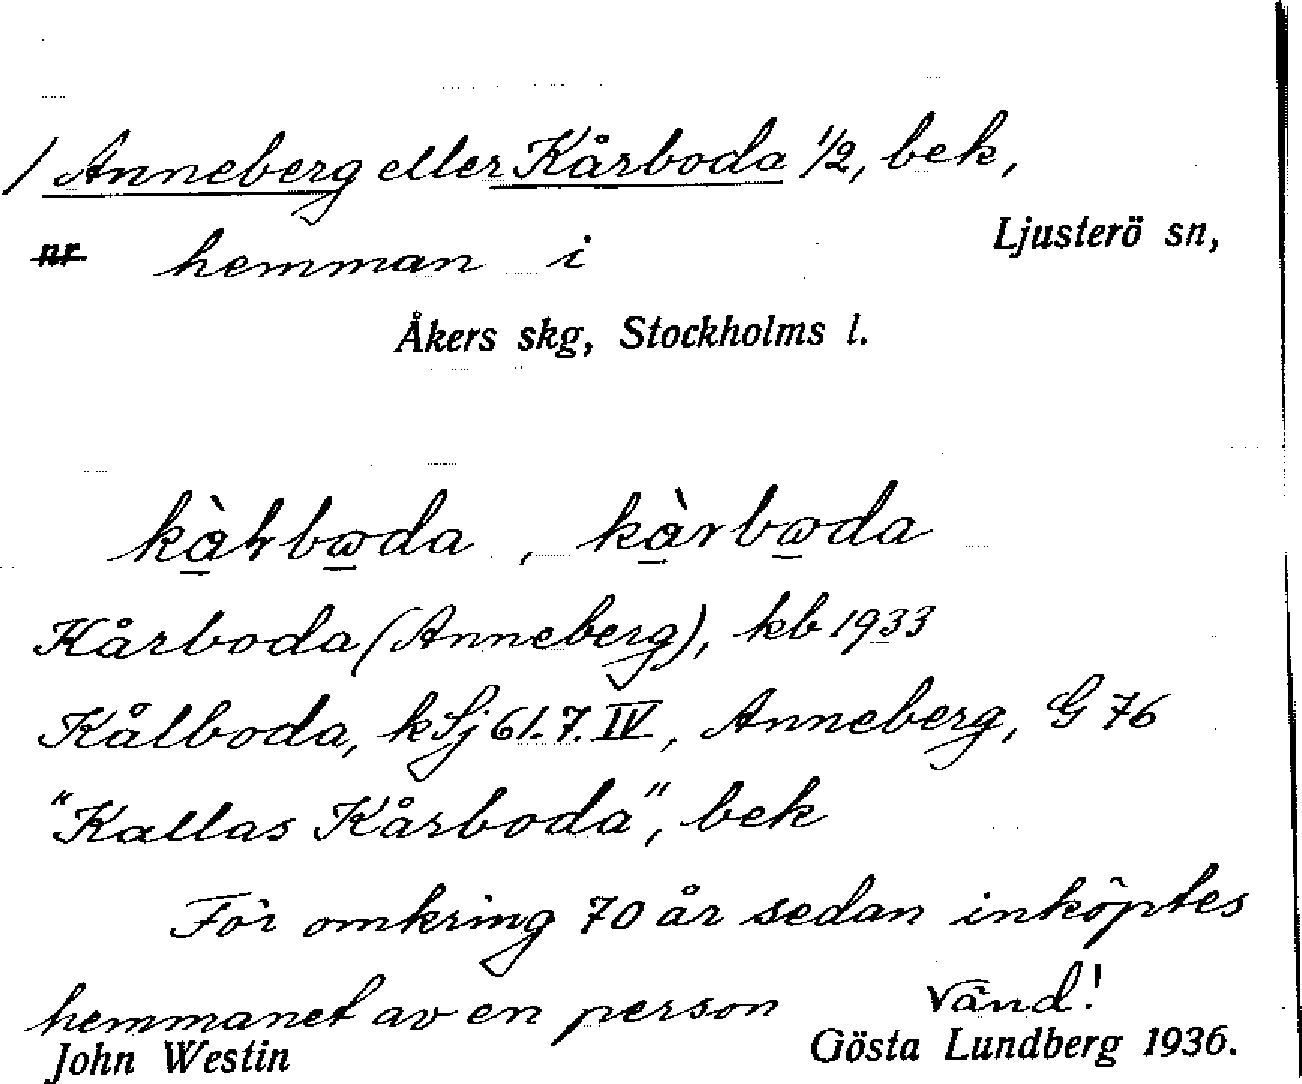 / Anneberg eller Kårboda 1/2, bek,
nr hemman i Ljusterö sn,
Åkers skg, Stockholms l.
kàrboda, kàrboda
Kårboda (Anneberg), kb 1933
Kålboda, kSj 61.7.IV, Anneberg, G 76
"Kallas Kårboda", bek
För omkring 70 år sedan inköptes
hemmanet av en person Vänd!
John Westin Gösta Lundberg 1936.